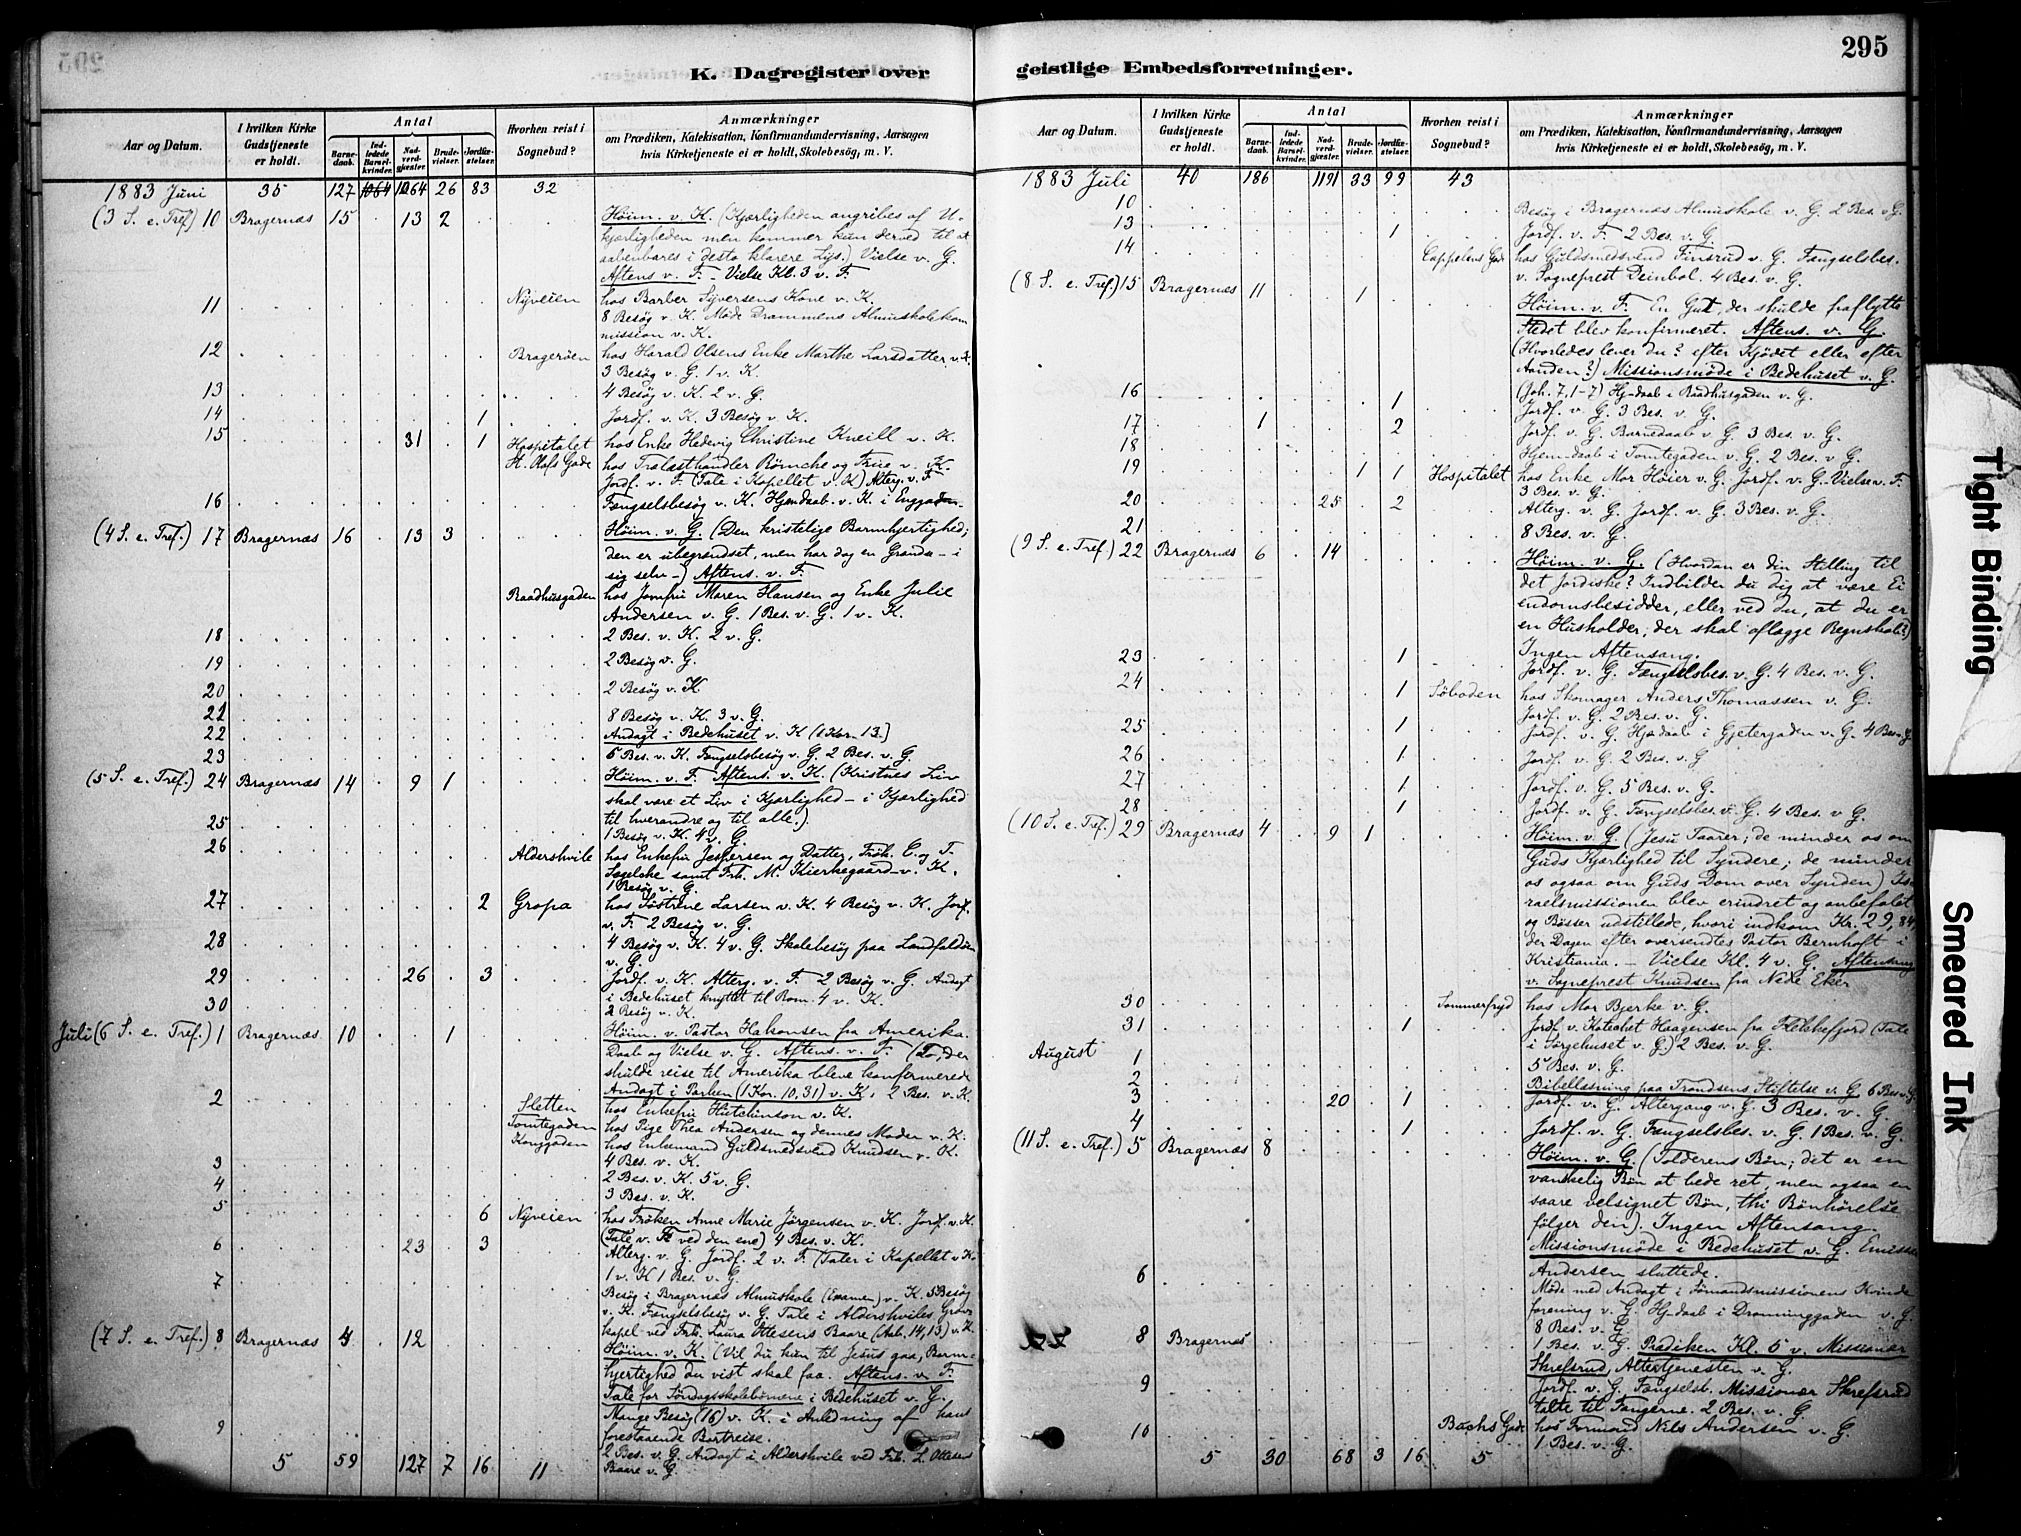 295
K. Dagregister over
geistlige Embedsforretninger.
Aar og Datum.
I hvilken Kirke Gudstjeneste er holdt.
Antal
Barnedaab.
Indledede Barselkvinder.
Nadverdgjæster.
Brudevielser.
Jordfæstelser.
Hvorhen reist i Sognebud?
Anmærkninger
om Prædiken, Katekisation, Konfirmandundervisning, Aarsagen
hvis Kirketjeneste ei er holdt, Skolebesøg, m. V.
1883 Juni 35 127 1064 1064 26 83 32
(3 S. e. Tref) 10 Bragernæs 15 13 2 Höim. v. K. (Kjærligheden angribes af U-
kjærligheden men kommer kun derved til at
aabenbares i desto klarere Lys.) Vielse v. G.
Aftens v. F. - Vielse Kl. 3 v. F.
11 Nyveien hos Barber Syversens Kone v. K.
8 Besøg v. K. Møde Drammens Almuskolekom
mission v. K.
12 Bragerøen hos Harald Olsens Enke Marthe Larsdatter v. K.
3 Besøg v. G. 1 v. K.
13 4 Besøg v. K. 2 v. G.
14 1 Jordf. v. K. 3 Besøg v. K.
15 31 1 Hospitalet hos Enke Hedevig Christine Kneill v. K.
St. Olafs Gade hos Trælasthandler Børnche og Frue v. K.
Jordf. v. F. (Tale i Kapellet v. K) Alterg. v. F
16 Fængselsbesøg v. K. Hjemdaab. v. K. i Enggaden.
(4 S. e. Tref.) 17 Bragernæs 16 13 3 Höim. v. G. (Den kristelige Barmhjertighed;
den er ubegrændset, men har dog en Grændse - i
sig selv -) Aftens. v. F.
Raadhusgaden hos Jomfru Maren Hansen og Enke Julie
Andersen v. G. 1 Bes. v. G. 1 v. K.
18 2 Bes. v. K. 2 v. G.
19 2 Besøg v. G.
20 2 Besøg v. K
21 8 Besøg v. K. 3 v. G.
22 Andagt i Bedehuset v. K (1 Kor. 13.)
23 5 Bes. v. K. Fængselsbesøg v. G. 2 Bes. v. G.
(5 S. e. Tref.) 24 Bragernæs 14 9 1 Höim. v. F. Aftens. v. K. (Kristnes Liv
skal være et Liv i Kjærlighed - i Kjærlighed
til hverandre og til alle.)
25 1 Besøg v. K. 4 v. G.
26 Aldershvile hos Enkefru Jespersen og Datter, Frøk. C. og T.
samt Frk. M. Kierkegaard v. K.
1 Besøg v. G.
27 2 Gropa hos Søstrene Larsen v. K. 4 Besøg v. K. Jordf.
v. F. 2 Besøg v. G.
28 4 Besøg v. K. 4 v. G. Skolebesøg paa Landfaldøen
v. G.
29 26 3 Jordf. v. K. Alterg. v. F. 2 Besøg v. G. Andagt
i Bedehuset knyttet til Rom. 4 v. K.
30 2 Besøg v. K.
Juli (6 S. e. Tref.) 1 Bragernæs 10 1 Höim. v. Pastor Hakonsen fra Amerika.
Daab og Vielse v. G. Aftens. v. F. (To, der
skulde reise til Amerika bleve konfirmerede
Andagt i Parken (1 Kor. 10, 31) v. K. 2 Bes. v. K.
2 Sletten hos Enkefru Hutchinson v. K.
Tomtegaden hos Pige Thea Andersen og dennes Moder v. K.
Konggaden hos Enkemand Guldsmedsvend Knudsen v. K.
3 4 Bes. v. K.
4 2 Bes. v. K. 5 v. G.
5 3 Bes. v. K.
6 Nyveien hos Frøken Anne Marie Jørgensen v. K. Jordf. v. K.
(Tale v. K ved den ene) 4 Bes. v. K.
6 23 3 Alterg. v. G. Jordf. 2 v. F. (Taler i Kapellet v. K.
1 v. K 1 Bes. v. G.
7 Besøg i Bragernæs Almuskole (Examen) v. K. 5 Besøg
v. K. Fængselsbesøg v. G. Tale i Aldershviles Grav
kapel ved Frk. Laura Ottesens Baare (Aab. 14, 13) v. K.
(7 S. e. Tref.) 8 Bragernæs 4 12 Höim. v. K. (Vil du kun til Jesus gaa, Barm-
hjertighed du vist skal faa. Aftens. v. F.
Tale for Søndagsskolebørnene i Bedehuset v. G.
9 Mange Besøg (16) v. K. i Anledning af hans
forestaaende Bortreise.
2 Bes. v. G. Andagt i Aldershvile ved Frk. L. Ottesens
Baare v. G.
5 59 127 7 16 11
Aar og Datum.
I hvilken Kirke Gudstjeneste er holdt.
Antal
Barnedaab.
Indledede Barselkvinder.
Nadverdgjæster.
Brudevielser.
Jordfæstelser.
Hvorhen reist i Sognebud?
Anmærkninger
om Prædiken, Katekisation, Konfirmandundervisning, Aarsagen
hvis Kirketjeneste ei er holdt, Skolebesøg, m. V.
1883 Juli 40 186 1191 33 99 43
10 Besøg i Bragernæs Almuskole v. G. 2 Bes. v G.
13 1 Jordf. v. F. 2 Bes. v. G.
14 Cappelens Gade hos Guldsmedsvend Finsrud v. G. Fængselsbes.
v. Sogneprest Deinbol. 4 Bes. v. G.
(8 S. e. Tref.) 15 Bragernæs 11 1 Höim. v. F. En Gut, der skulde fraflytte
Stedet blev konfirmeret. Aftens. v. G.
(Hvorledes lever du? efter Kjødet eller efter
Aanden?) Missionsmøde i Bedehuset v. G.
(Joh. 7, 1-7) Hj-daab i Raadhusgaden v. G.
16 1 Jordf. v. G. 3 Bes. v. G.
17 1 2 Jordf. v. G. Barnedaab v. G. 3 Bes. v. G.
18 Hjemdaab i Tomtegaden v. G. 2 Bes. v. G.
19 1 1 Hospitalet hos Enke Mor Høier v. G. Jordf. v. G. Vielse v. F.
3 Bes. v. G.
20 25 2 Alterg. v. G. Jordf. v. G. 3 Bes. v. G.
21 8 Bes. v. G.
(9 S. e. Tref.) 22 Bragernæs 6 14 Höim. v. G. (Hvordan er din Stilling til
det Jordiske? Indbilder du dig at være Ei
endomsbesidder, eller ved du, at du er
en Husholder, der skal aflægge Regnskab?)
Ingen Aftensang.
23 1 Jordf. v. G. Fængselsbes. v. G. 4 Bes. v. G.
24 1 Søboden hos Skomager Anders Thomassen v. G.
Jordf. v. G. 2 Bes. v. G.
25 1 Jordf. v. G. Hjdaab i Gjetergaden v. G. 4 Bes. v. G
26 1 Jordf. v. G. 2 Bes. v. G
27 1 Jordf. v. G. 5 Bes. v. G.
28 1 Jordf. v. G. Fængselsbes. v. G. 4 Bes. v. G.
(10 S. e. Tref.) 29 Bragernæs 4 9 1 Höim. v. G (Jesu Taarer; de minder os om
Guds Kjærlighed til Syndere; de minder
os ogsaa om Guds Dom over Synden) Is-
raelsmissionen blev erindret og anbefalet
og Bøsser udstillede, hvori indkom Kr. 29,84,
der Dagen efter oversendtes Pastor Bernhoft i
Kristiania. - Vielse Kl. 4 v. G. Aftensang
v. Sogneprest Knudsen fra Nedre Eker
30 Sommerfryd hos Mor Bjerke v. G.
31 1 Jordf. v. Katechet Haagensen fra Flekkefjord (Tale
i Sørgehuset v. G.) 2 Bes. v. G.
August 1 5 Bes. v. G.
2 Bibellæsning paa Trondsens Stiftelse v. G. 6 Bes v. G.
3 20 1 Jordf. v. G. Altergang v. G. 3 Bes. v. G.
4 1 Jordf. v. G. Fængselsbes. v. G. 1 Bes. v. G.
(11 S. e. Tref.) 5 Bragernæs 8 Höim. v. G (Tolderens Bøn; det er en
vanskelig Bøn at bede ret, men ogsaa en
saare velsignet Bøn, thi Bønhørelse
følger den). Ingen Aftensang.
Missionsmøde i Bedehuset v. G. Emissær
Andersen sluttede.
6 Møde med Andagt i Sømandsmissionens Kvinde
forening v. G. Hj-daab i Dronninggaden v. G.
8 Bes. v. G
8 Bragernæs 1 Bes. v. G. Prædiken Kl. 5 v. Missionær
Skrefsrud, Altertjenesten v. G.
9 Jordf. v. G. Fængselsb. Missionær Skrefsrud
talte til Fangerne. 2 Bes. v. G.
10 Bachs Gade hos Formand Nils Andersen v. G.
1 Bes. v. G.
5 30 68 3 16 5
Tight Binding
Smeared Ink